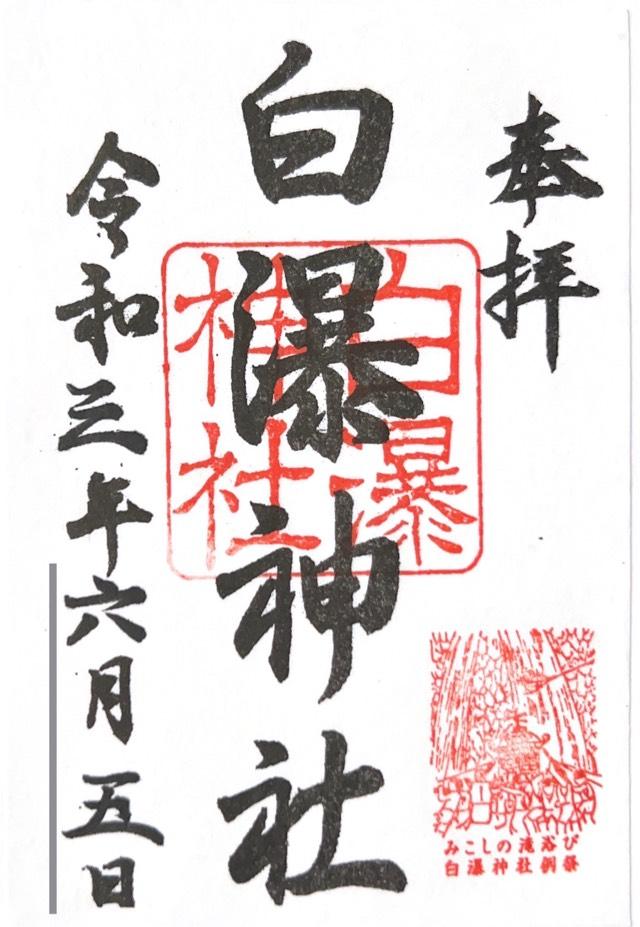 奉拝
白瀑神社
白瀑
神社
令和三年六月五日
みこしの滝浴び
白瀑神社例祭